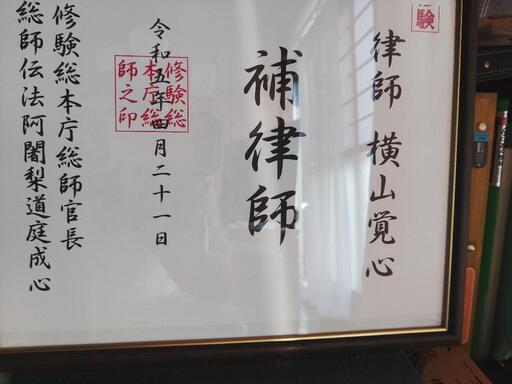 律師 横山覚心
補律師
令和五年四月二十一日
修験総本庁総師官長
総師伝法阿闍梨道庭成心
修験総
本庁総
師之印
験